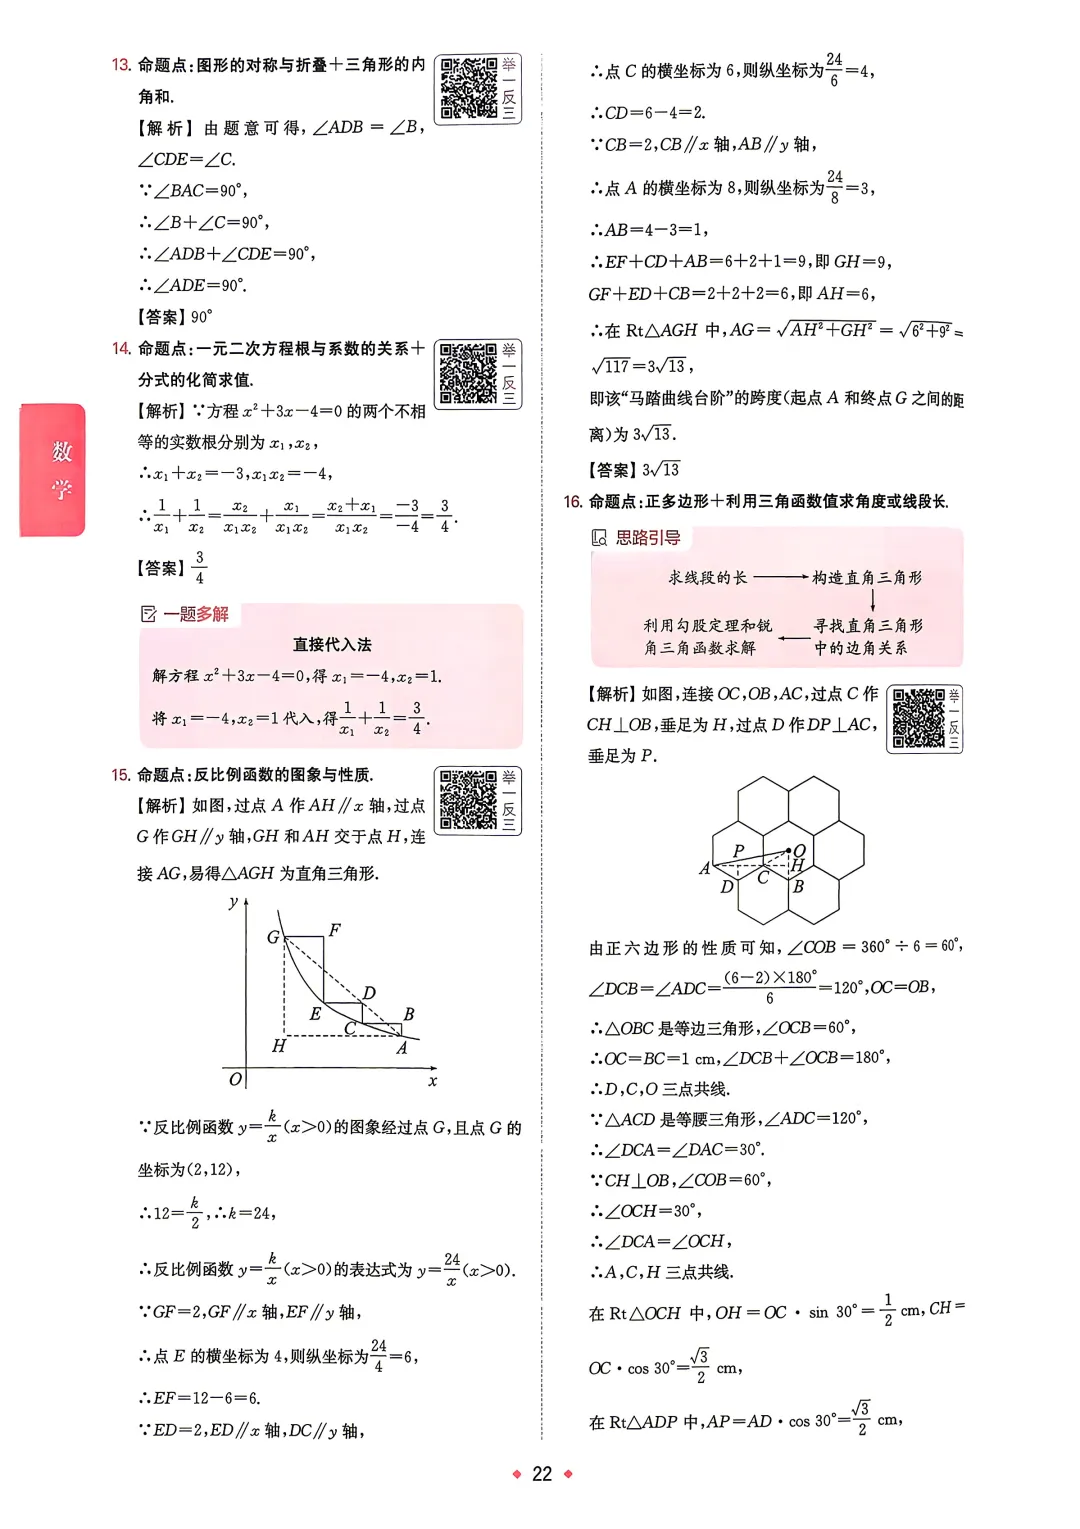 数学
13. 命题点:图形的对称与折叠+三角形的内
角和.
【解析】由题意可得,∠ADB=∠B,
∠CDE=∠C.
∵∠BAC=90°,
∴∠B+∠C=90°,
∴∠ADB+∠CDE=90°,
∴∠ADE=90°.
【答案】90°
举一反三
14. 命题点:一元二次方程根与系数的关系+
分式的化简求值.
【解析】∵方程x²+3x-4=0的两个不相
等的实数根分别为x₁,x₂,
∴x₁+x₂=-3,x₁x₂=-4,
∴1/x₁+1/x₂=x₂/x₁x₂+x₁/x₁x₂=(x₂+x₁)/x₁x₂=-3/-4=3/4.
【答案】3/4
举一反三
一题多解
直接代入法
解方程x²+3x-4=0,得x₁=-4,x₂=1.
将x₁=-4,x₂=1代入,得1/x₁+1/x₂=3/4.
15. 命题点:反比例函数的图象与性质.
【解析】如图,过点A作AH∥x轴,过点
G作GH∥y轴,GH和AH交于点H,连
接AG,易得△AGH为直角三角形.
举一反三
y
G
F
D
E
B
C
H
A
O
x
∵反比例函数y=k/x(x>0)的图象经过点G,且点G的
坐标为(2,12),
∴12=k/2,∴k=24,
∴反比例函数y=k/x(x>0)的表达式为y=24/x(x>0).
∵GF=2,GF∥x轴,EF∥y轴,
∴点E的横坐标为4,则纵坐标为24/4=6,
∴EF=12-6=6.
∵ED=2,ED∥x轴,DC∥y轴,
∴点C的横坐标为6,则纵坐标为24/6=4,
∴CD=6-4=2.
∵CB=2,CB∥x轴,AB∥y轴,
∴点A的横坐标为8,则纵坐标为24/8=3,
∴AB=4-3=1,
∴EF+CD+AB=6+2+1=9,即GH=9,
GF+ED+CB=2+2+2=6,即AH=6,
∴在Rt△AGH中,AG=√(AH²+GH²)=√(6²+9²)=
√117=3√13,
即该“马踏曲线台阶”的跨度(起点A和终点G之间的距
离)为3√13.
【答案】3√13
16. 命题点:正多边形+利用三角函数值求角度或线段长.
思路引导
求线段的长→构造直角三角形
↓
利用勾股定理和锐角三角函数求解←寻找直角三角形中的边角关系
【解析】如图,连接OC,OB,AC,过点C作
CH⊥OB,垂足为H,过点D作DP⊥AC,
垂足为P.
举一反三
P
O
A
H
D
C
B
由正六边形的性质可知,∠COB=360°÷6=60°,
∠DCB=∠ADC=(6-2)×180°/6=120°,OC=OB,
∴△OBC是等边三角形,∠OCB=60°,
∴OC=BC=1 cm,∠DCB+∠OCB=180°,
∴D,C,O三点共线.
∵△ACD是等腰三角形,∠ADC=120°,
∴∠DCA=∠DAC=30°.
∵CH⊥OB,∠COB=60°,
∴∠OCH=30°,
∴∠DCA=∠OCH,
∴A,C,H三点共线.
在Rt△OCH中,OH=OC·sin 30°=1/2 cm,CH=
OC·cos 30°=√3/2 cm,
在Rt△ADP中,AP=AD·cos 30°=√3/2 cm,
22